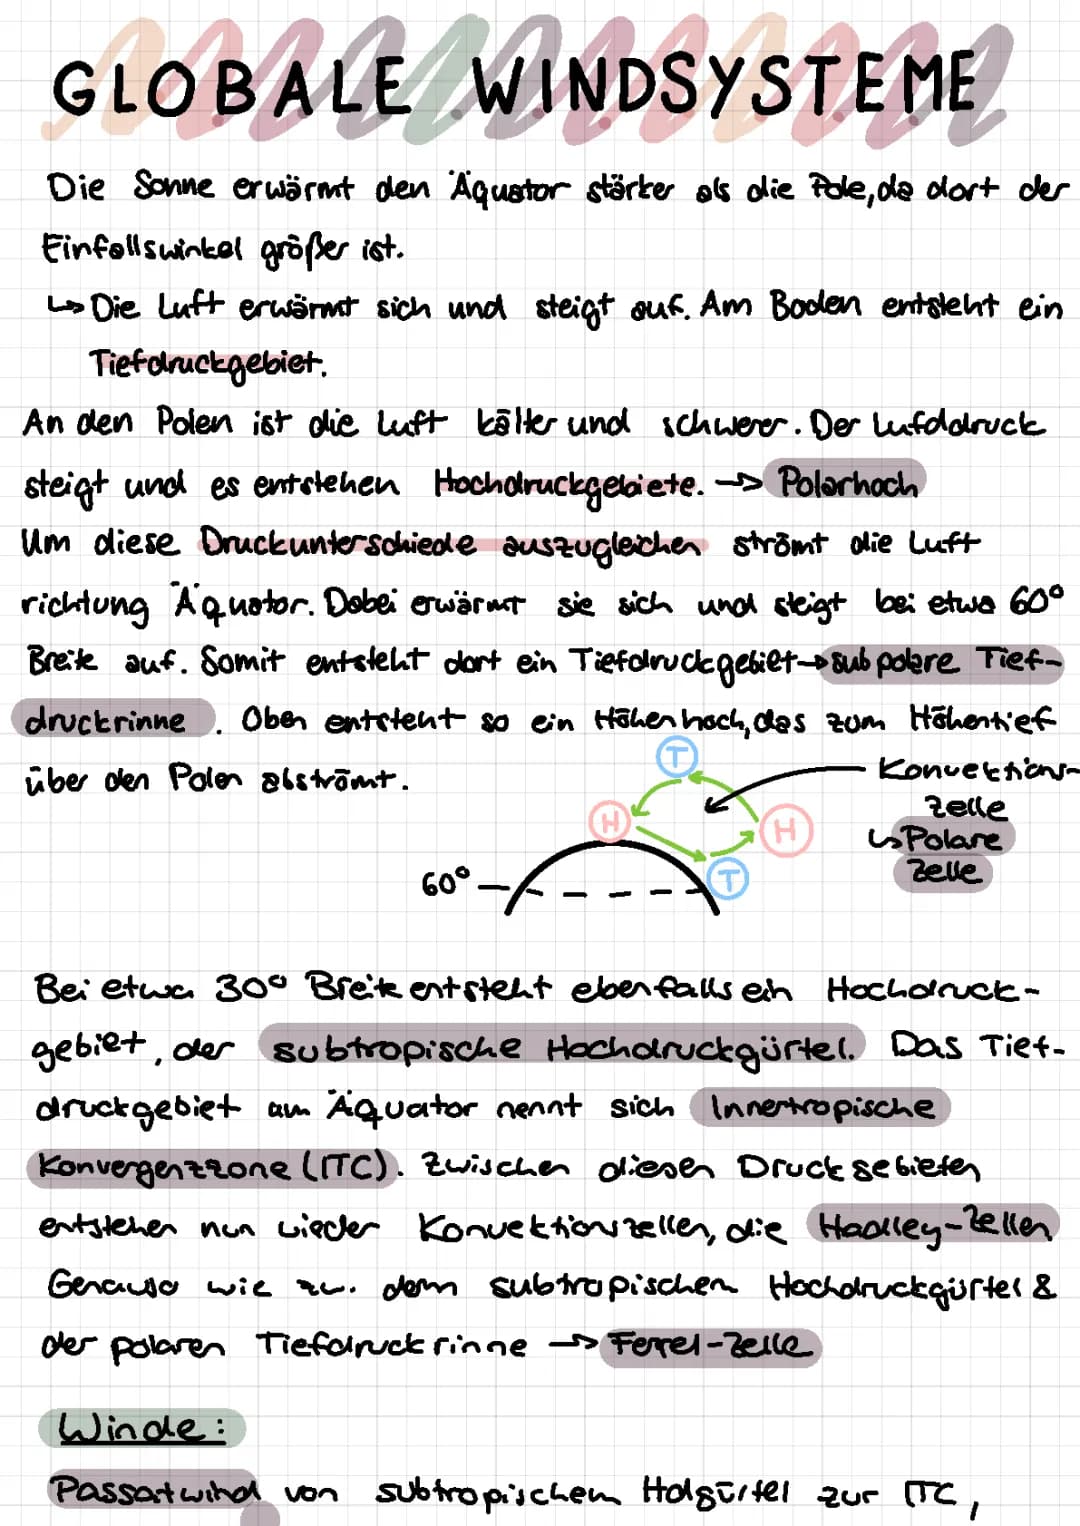 GLOBALE WINDSYSTEME
Die Sonne erwärmt den Äquator stärker als die Pole, da dort der
Einfallswinkel größer ist.
↳ Die Luft erwärmt sich und steigt auf. Am Boden entsteht ein
Tiefdruckgebiet.
An den Polen ist die Luft kälter und schwerer. Der Lufddruck
steigt und es entstehen Hochdruckgebiete. → Polarhoch
Um diese Druckunterschiede auszugleichen strömt die Luft
richtung Äquator. Dabei erwärmt sie sich und steigt bei etwa 60°
Breite auf. Somit entsteht dort ein Tiefdruckgebiet → subpolare Tief-
druckrinne. Oben entsteht so ein Höhenhoch, das zum Höhentief
über den Polen abströmt.
T
Konvektions-
zelle
H
H
↳ Polare
Zelle
60°
T
Bei etwa 30° Breite entsteht ebenfalls ein Hochdruck-
gebiet, der subtropische Hochdruckgürtel. Das Tief-
druckgebiet am Äquator nennt sich Innertropische
Konvergenzzone (ITC). Zwischen diesen Druckgebieten
entstehen nun wieder Konvektionszellen, die Hadley-Zellen
Genauso wie zw. dem subtropischen Hochdruckgürtel &
der polaren Tiefdruckrinne → Ferrel-Zelle
Winde:
Passatwind von subtropischem Hohgürtel zur ITC,